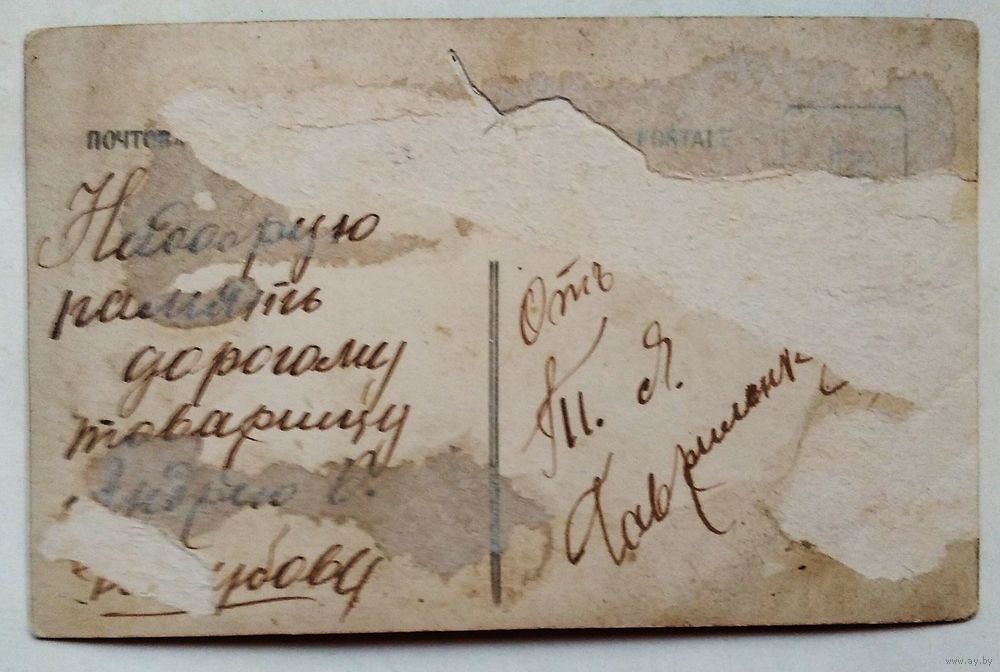 ПОЧТОВ
POSTALE
На добрую
память
дорогому
товарищу
Андрею С.
Отъ
П. Я.
Гавриленк
www.ay.by